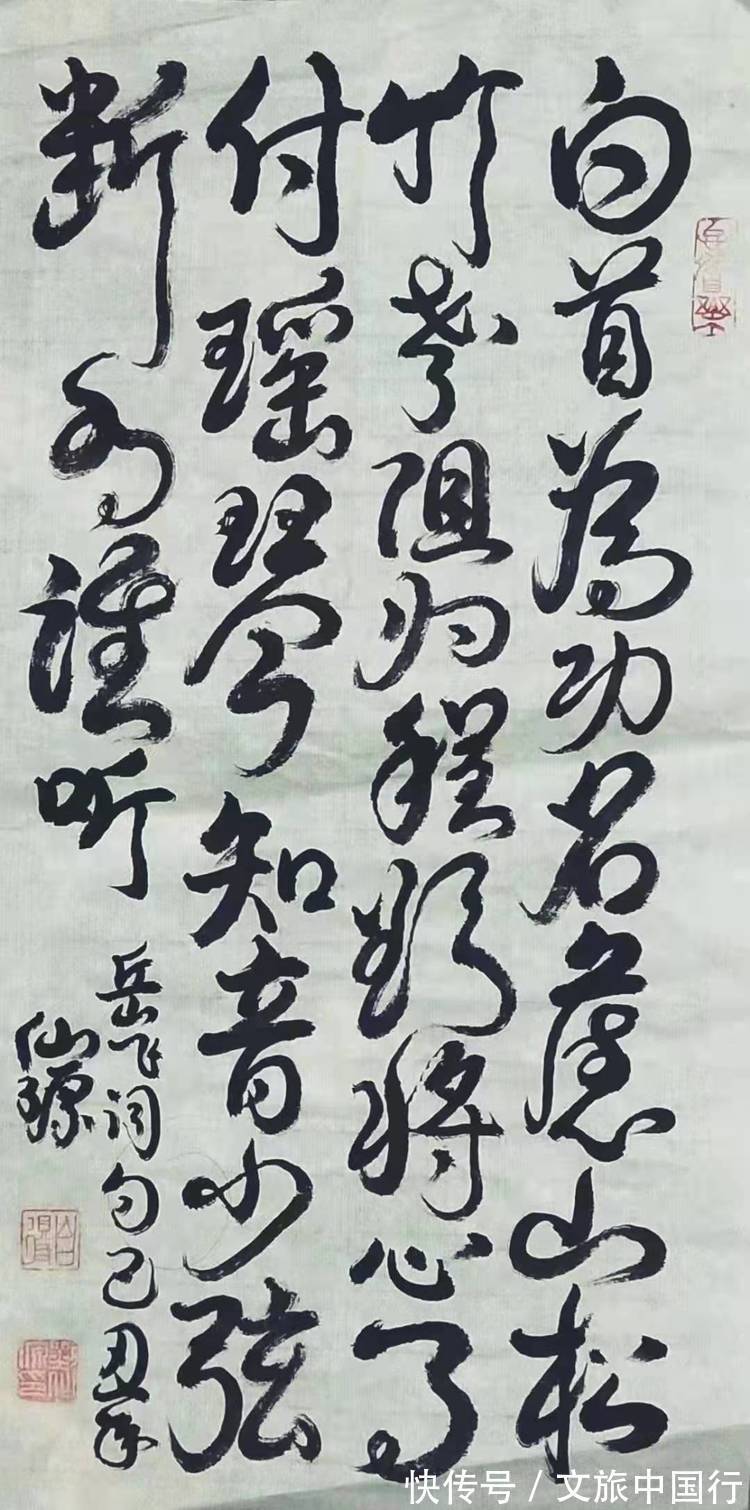 白首為功名舊山松
竹老阻归程欲將心事
付瑶琴知音少弦
断有誰听
岳飞词句己丑年
仙
快传号 / 文旅中国行